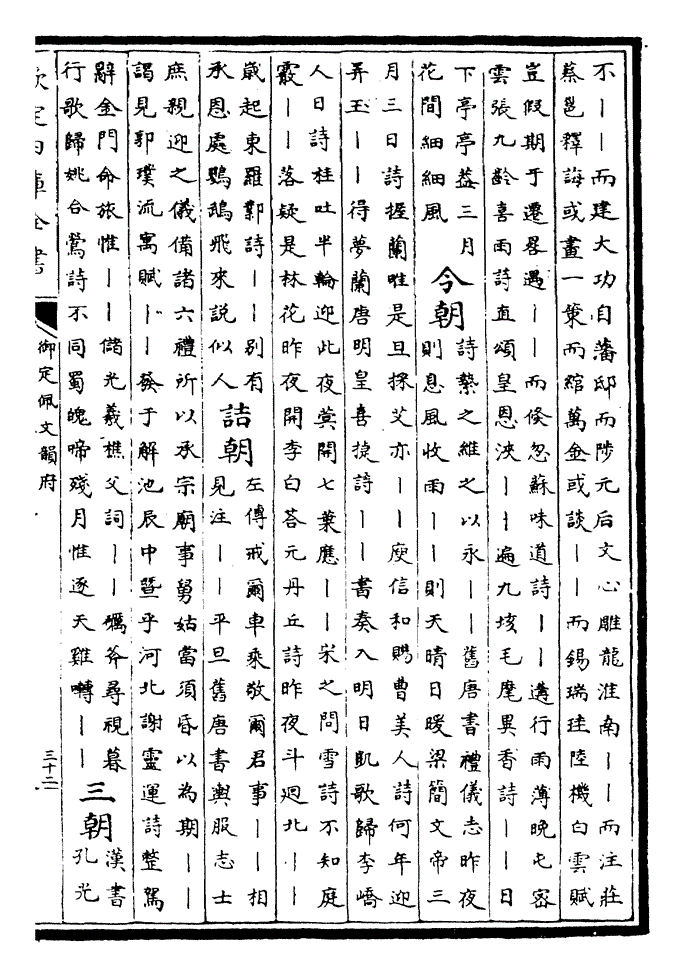 不――而建大功自藩邸而陟元后文心雕龍淮南――而注莊
蔡邕釋誨或畫一策而綰萬金或談――而錫瑞珪陸機白雲賦
豈假期于遷晷遇――而倏忽蘇味道詩――遘行雨薄晚屯密
雲張九齡喜雨詩直頌皇恩浹――遍九垓毛麾異香詩――日
下亭亭益三月
花間細細風
今朝
詩縶之維之以永――舊唐書禮儀志昨夜
則息風收雨――則天晴日暖梁簡文帝三
月三日詩握蘭唯是旦採艾亦――庾信和賜曹美人詩何年迎
弄玉――得夢蘭唐明皇喜捷詩――書奏入明日凱歌歸李嶠
人日詩桂吐半輪迎此夜蓂開七葉應――宋之問雪詩不知庭
霰――落疑是林花昨夜開李白荅元丹丘詩昨夜斗迴北――
歲起東羅鄴詩――别有
承恩處鸚鵡飛來説似人
詰朝
左傳戒爾車乘敬爾君事――相
見注――平旦舊唐書輿服志士
庶親迎之儀備諸六禮所以承宗廟事舅姑當須昏以為期――
謁見郭璞流寓賦――發于解池辰中暨乎河北謝靈運詩整駕
辭金門命旅惟――儲光羲樵父詞――礪斧尋視暮
行歌歸姚合鶯詩不同蜀魄啼殘月惟逐天雞囀――
三朝
漢書
孔光
欽定四庫全書
御定佩文韻府
三十二